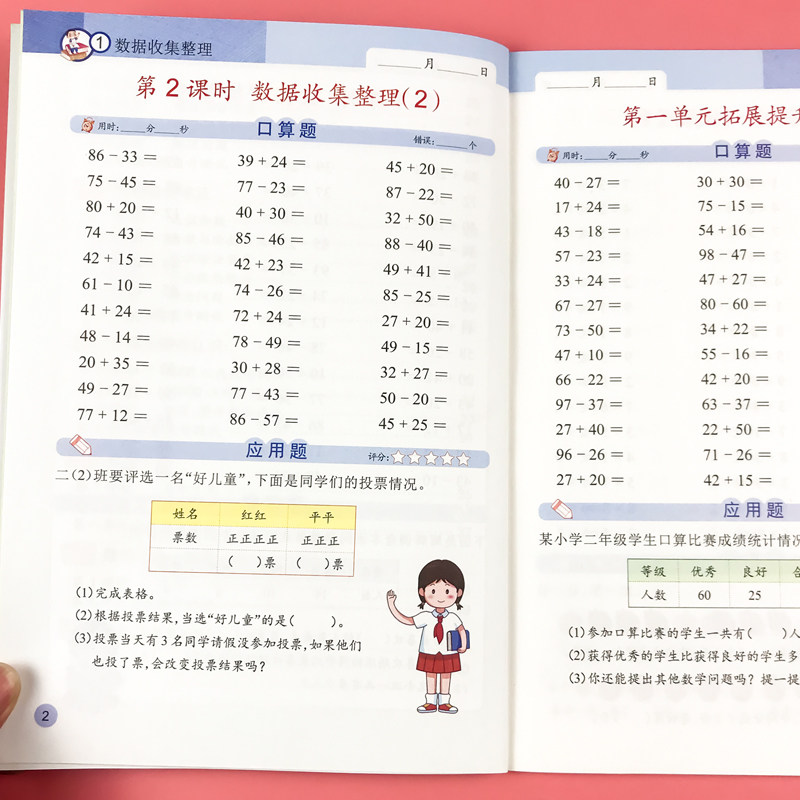 1 数据收集整理
____月____日
第2课时 数据收集整理(2)
用时:____分____秒 口算题 错误:____个
86－33＝ 39＋24＝ 45＋20＝
75－45＝ 77－23＝ 87－22＝
80＋20＝ 40＋30＝ 32＋50＝
74－43＝ 85－46＝ 88－40＝
42＋15＝ 42＋23＝ 49＋41＝
61－10＝ 74－26＝ 85－25＝
41＋24＝ 72＋24＝ 27＋20＝
48－14＝ 78－49＝ 49－15＝
20＋35＝ 30＋28＝ 32＋27＝
49－27＝ 77－43＝ 50－20＝
77＋12＝ 86－57＝ 45＋25＝
应用题 评分:☆☆☆☆☆
二(2)班要评选一名“好儿童”,下面是同学们的投票情况。
姓名 红红 平平
票数 正正正正 正正正
( )票 ( )票
(1)完成表格。
(2)根据投票结果,当选“好儿童”的是( )。
(3)投票当天有3名同学请假没参加投票,如果他们
也投了票,会改变投票结果吗?
2
____月____日
第一单元拓展提升
用时:____分____秒 口算题
40－27＝ 30＋30＝
17＋24＝ 75－15＝
43－18＝ 54＋16＝
57－23＝ 98－47＝
33＋24＝ 47＋27＝
67－27＝ 80－60＝
73－50＝ 34＋22＝
47＋10＝ 55－16＝
66－22＝ 42＋20＝
97－37＝ 63－37＝
27＋40＝ 22＋50＝
96－26＝ 71－26＝
27＋20＝ 42＋15＝
应用题
某小学二年级学生口算比赛成绩统计情况
等级 优秀 良好
人数 60 25
(1)参加口算比赛的学生一共有( )人
(2)获得优秀的学生比获得良好的学生多
(3)你还能提出其他数学问题吗?提一提